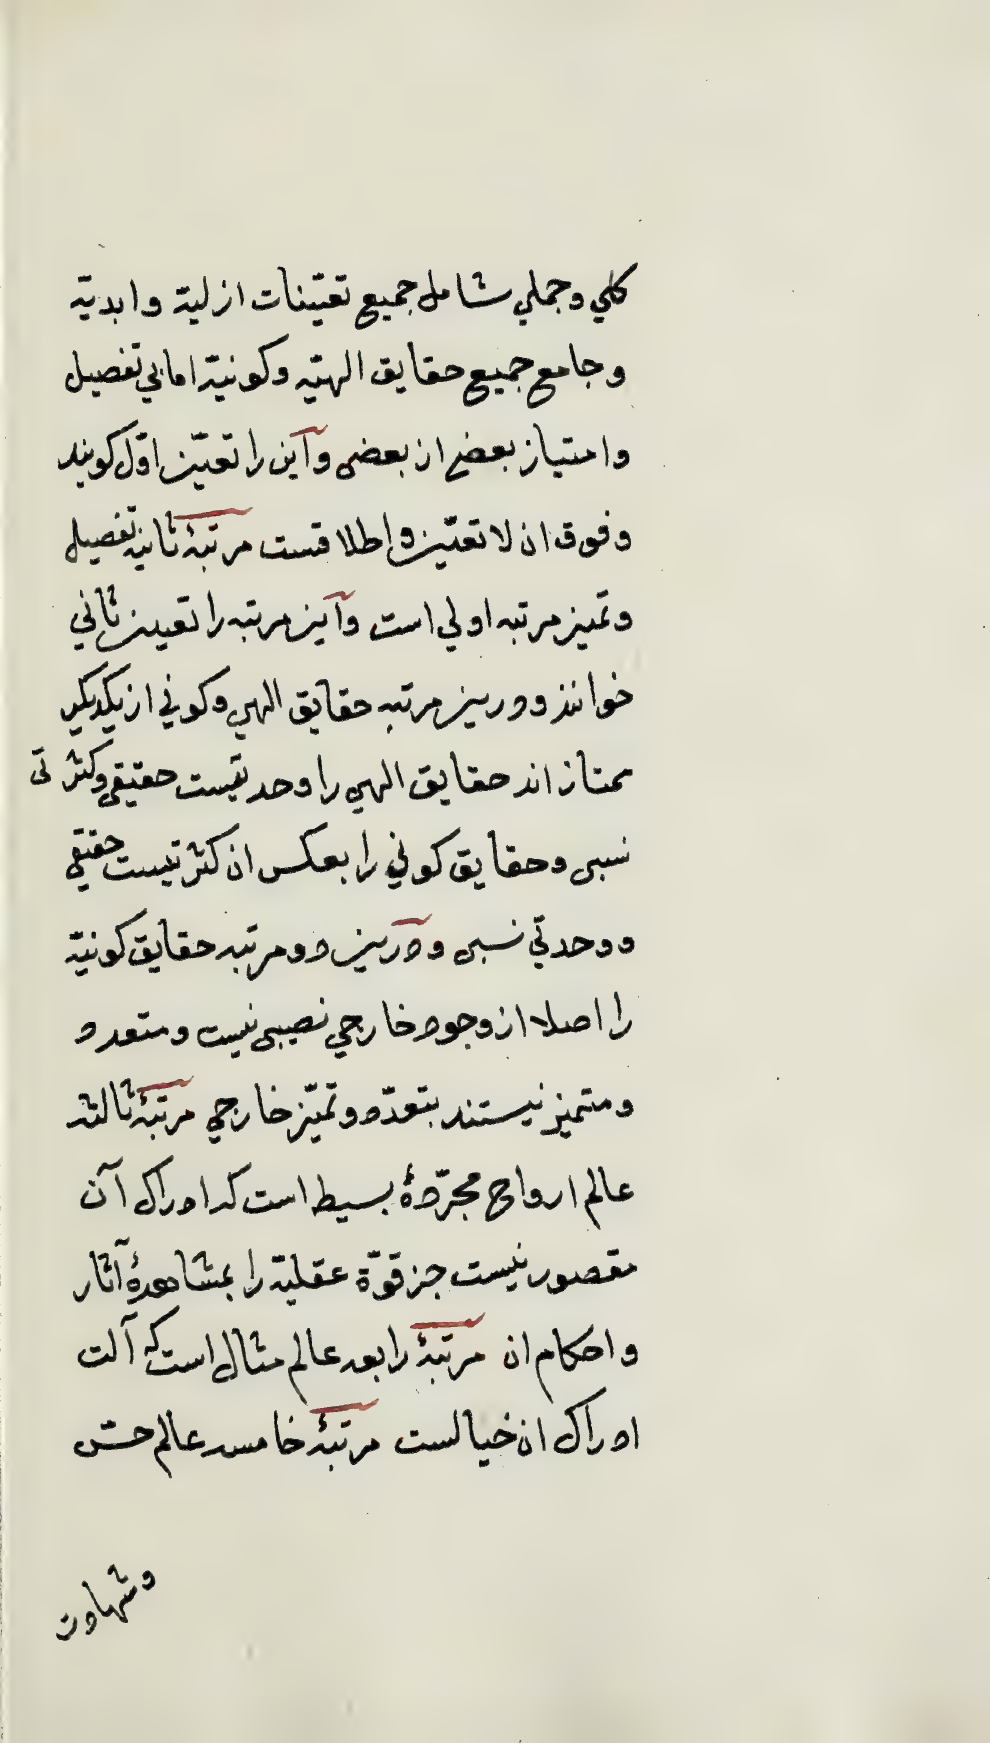 كلي وجملي شامل جميع تعيّنات ازليّة وابديّة
وجامع جميع حقايق الهيّه وكونيّة اما بي تفصيل
وامتياز بعضي از بعضي وآين را تعيّن اوّل كويند
وفوق ان لا تعيّن واطلاقست مرتبۀ ثانيه تفصيل
وتميز مرتبه اولي است وآين مرتبه را تعين ثاني
خوانند ودرين مرتبه حقايق الهي وكوني از يكديكر
ممتاز اند حقايق الهي را وحدتيست حقيقي وكثرتي
نسبي وحقايق كوني را بعكس ان كثرتيست حقيقي
ووحدتي نسبي ودرين دو مرتبه حقايق كونيّة
را اصلا از وجود خارجي نصيبي نيست ومتعدد
ومتميز نيستند بتعدّد وتميّز خارجي مرتبۀ ثالثه
عالم ارواح مجرّدۀ بسيط است كه ادراك آن
مقصور نيست جز قوّة عقليّة را بمشاهدۀ آثار
واحكام ان مرتبۀ رابعه عالم مثال است كه آلت
ادراك ان خيالست مرتبۀ خامسه عالم حسّ
وشهادت